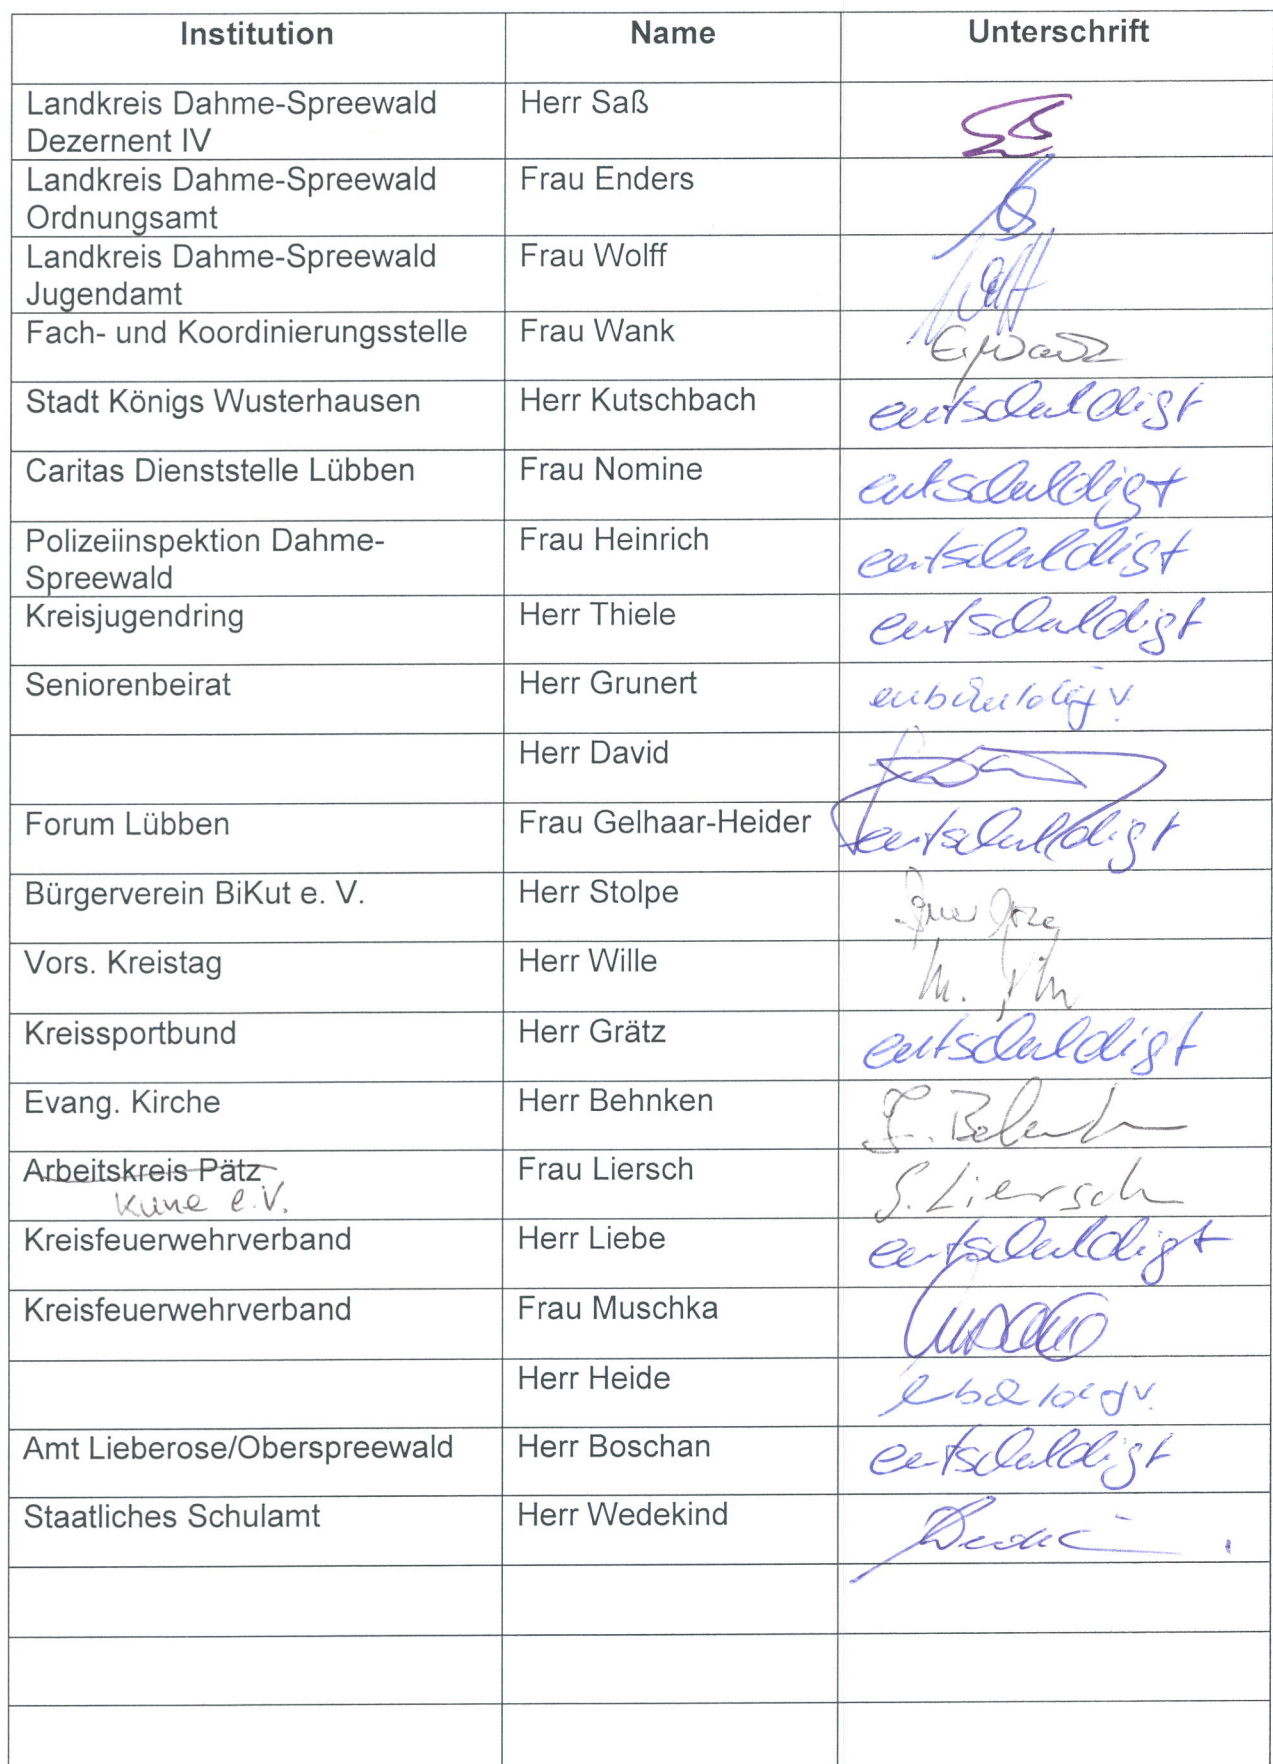 Institution Name Unterschrift
Landkreis Dahme-Spreewald Herr Saß
Dezernent IV
Landkreis Dahme-Spreewald Frau Enders
Ordnungsamt
Landkreis Dahme-Spreewald Frau Wolff
Jugendamt
Fach- und Koordinierungsstelle Frau Wank E. Wank
Stadt Königs Wusterhausen Herr Kutschbach entschuldigt
Caritas Dienststelle Lübben Frau Nomine entschuldigt
Polizeiinspektion Dahme- Frau Heinrich entschuldigt
Spreewald
Kreisjugendring Herr Thiele entschuldigt
Seniorenbeirat Herr Grunert
Herr David
Forum Lübben Frau Gelhaar-Heider entschuldigt
Bürgerverein BiKut e. V. Herr Stolpe
Vors. Kreistag Herr Wille
Kreissportbund Herr Grätz entschuldigt
Evang. Kirche Herr Behnken
Arbeitskreis Pätz Frau Liersch S. Liersch
e.V.
Kreisfeuerwehrverband Herr Liebe entschuldigt
Kreisfeuerwehrverband Frau Muschka
Herr Heide
Amt Lieberose/Oberspreewald Herr Boschan entschuldigt
Staatliches Schulamt Herr Wedekind